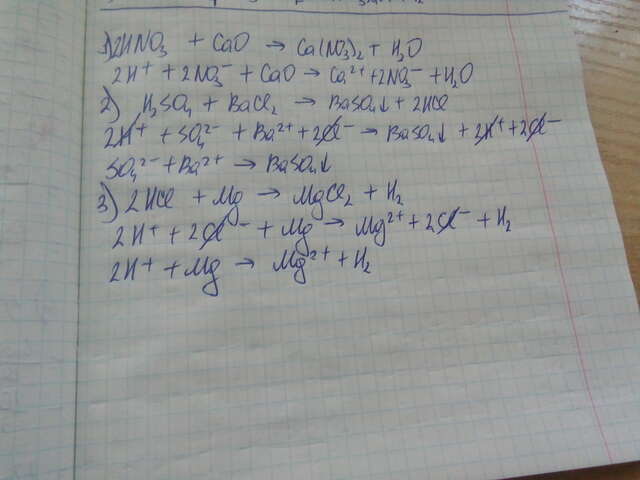 1) 2HNO₃ + CaO → Ca(NO₃)₂ + H₂O
2H⁺ + 2NO₃⁻ + CaO → Ca²⁺ + 2NO₃⁻ + H₂O
2) H₂SO₄ + BaCl₂ → BaSO₄↓ + 2HCl
2H⁺ + SO₄²⁻ + Ba²⁺ + 2Cl⁻ → BaSO₄↓ + 2H⁺ + 2Cl⁻
SO₄²⁻ + Ba²⁺ → BaSO₄↓
3) 2HCl + Mg → MgCl₂ + H₂
2H⁺ + 2Cl⁻ + Mg → Mg²⁺ + 2Cl⁻ + H₂
2H⁺ + Mg → Mg²⁺ + H₂